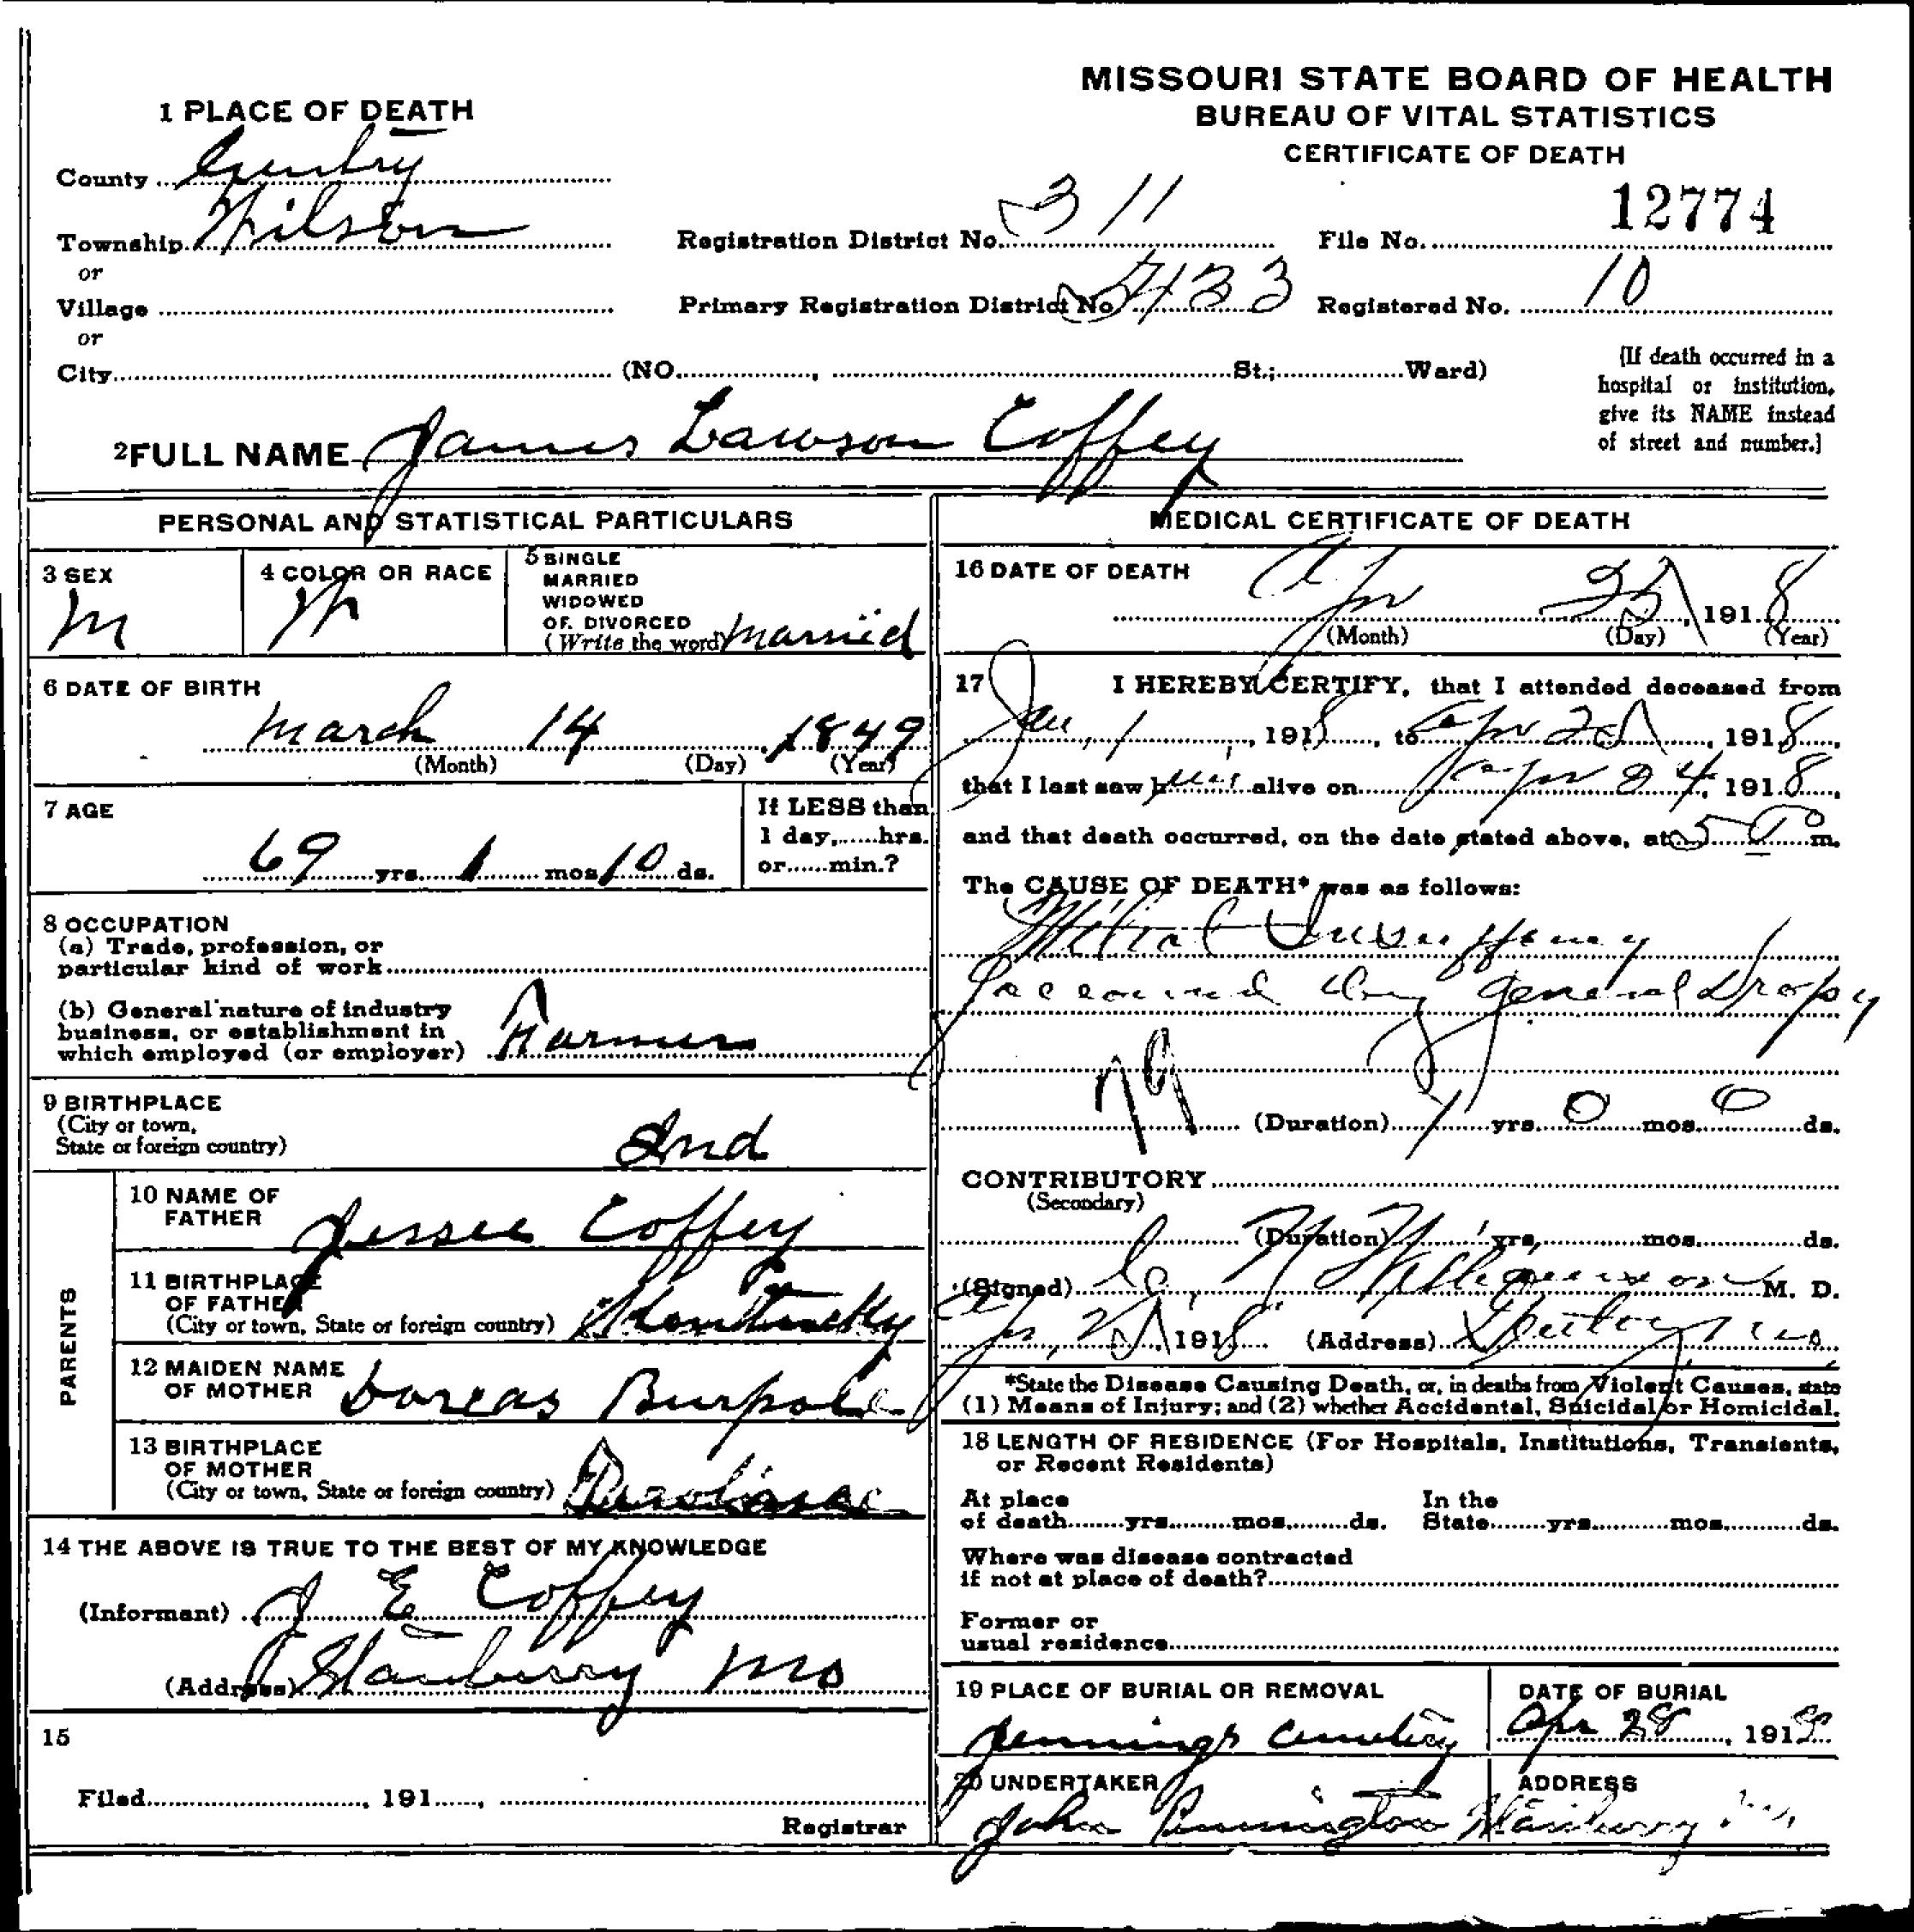 MISSOURI STATE BOARD OF HEALTH
BUREAU OF VITAL STATISTICS
CERTIFICATE OF DEATH
1 PLACE OF DEATH
County Gentry
Township Wilson
or
Village
or
City (NO. , St.; Ward)
Registration District No. 311
File No. 12774
Primary Registration District No. 5433
Registered No. 10
[If death occurred in a
hospital or institution,
give its NAME instead
of street and number.]
2 FULL NAME James Lawson Coffey
PERSONAL AND STATISTICAL PARTICULARS
3 SEX
M
4 COLOR OR RACE
W
5 SINGLE
MARRIED
WIDOWED
OR DIVORCED
(Write the word) Married
6 DATE OF BIRTH
March 14, 1849
(Month) (Day) (Year)
7 AGE
69 yrs. 1 mos. 10 ds.
If LESS than
1 day, hrs.
or min.?
8 OCCUPATION
(a) Trade, profession, or
particular kind of work
(b) General nature of industry
business, or establishment in
which employed (or employer) Farmer
9 BIRTHPLACE
(City or town,
State or foreign country) Ind
PARENTS
10 NAME OF
FATHER Jessee Coffey
11 BIRTHPLACE
OF FATHER
(City or town, State or foreign country)
12 MAIDEN NAME
OF MOTHER Dorcas
13 BIRTHPLACE
OF MOTHER
(City or town, State or foreign country)
14 THE ABOVE IS TRUE TO THE BEST OF MY KNOWLEDGE
(Informant) J E Coffey
(Address) Stanberry Mo
15
Filed , 191 ,
Registrar
MEDICAL CERTIFICATE OF DEATH
16 DATE OF DEATH
Apr 25, 1918
(Month) (Day) (Year)
17 I HEREBY CERTIFY, that I attended deceased from
Jan, 1, 1918, to Apr 25, 1918,
that I last saw him alive on Apr 24, 1918,
and that death occurred, on the date stated above, at 5 P m.
The CAUSE OF DEATH* was as follows:
Mitral Insufficiency
general Dropsy
79
(Duration) 1 yrs. 0 mos. 0 ds.
CONTRIBUTORY
(Secondary)
(Duration) yrs. mos. ds.
(Signed) M. D.
Apr, 25, 1918 (Address)
*State the Disease Causing Death, or, in deaths from Violent Causes, state
(1) Means of Injury; and (2) whether Accidental, Suicidal or Homicidal.
18 LENGTH OF RESIDENCE (For Hospitals, Institutions, Transients,
or Recent Residents)
At place
of death yrs. mos. ds.
In the
State yrs. mos. ds.
Where was disease contracted
if not at place of death?
Former or
usual residence
19 PLACE OF BURIAL OR REMOVAL
Jennings Cemetery
DATE OF BURIAL
Apr 28, 1918
20 UNDERTAKER
John Pennington
ADDRESS
Stanberry